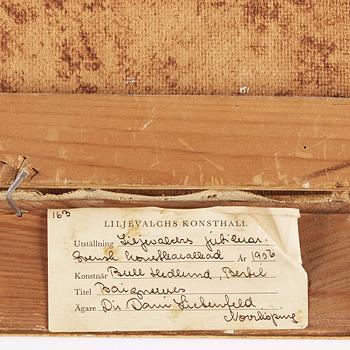 163
LILJEVALCHS KONSTHALL
Utställning Liljevalchs jubileum.
Svensk konstkavalkad År 1956
Konstnär Bull Hedlund, Bertil
Titel Baigneuses
Ägare Dir. Dani Lichenfeld
Norrköping